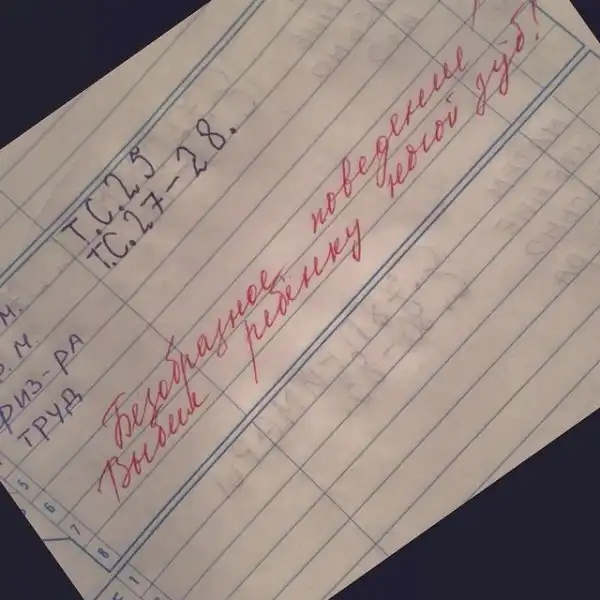 Т.С.25
Т.С.27-28.
М.
Р.М.
ФИЗ-РА
ТРУД
Безобразное поведение!
Выбил ребёнку ногой зуб!
5
6
7
8
1